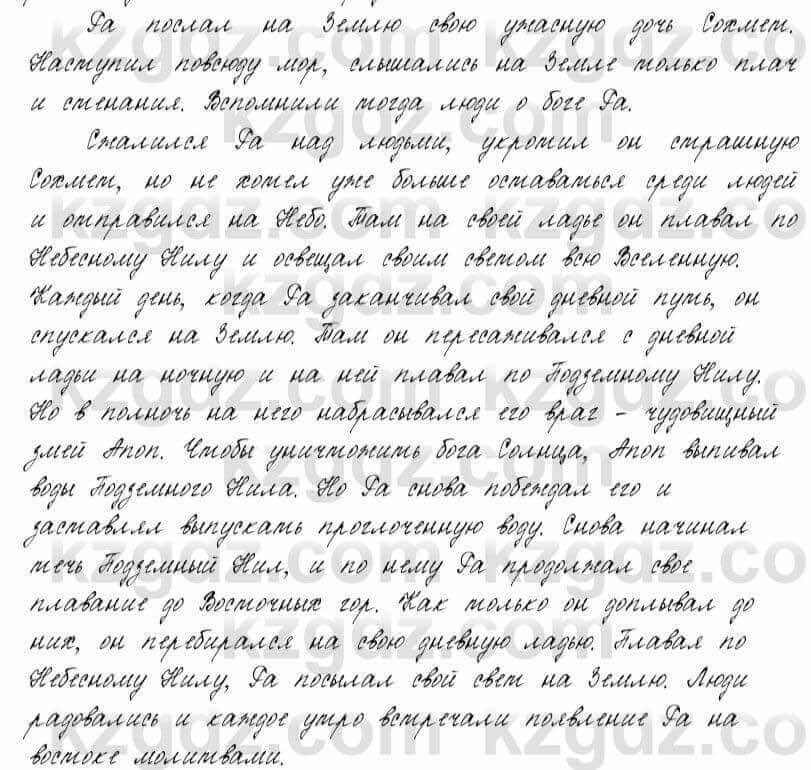 Ра послал на Землю свою ужасную дочь Сохмет.
Наступил повсюду мор, слышались на Земле только плач
и стенания. Вспомнили тогда люди о боге Ра.
Сжалился Ра над людьми, укротил он страшную
Сохмет, но не хотел уже больше оставаться среди людей
и отправился на Небо. Там на своей ладье он плавал по
Небесному Нилу и освещал своим светом всю Вселенную.
Каждый день, когда Ра заканчивал свой дневной путь, он
спускался на Землю. Там он пересаживался с дневной
ладьи на ночную и на ней плавал по Подземному Нилу.
Но в полночь на него набрасывался его враг – чудовищный
змей Апоп. Чтобы уничтожить бога Солнца, Апоп выпивал
воды Подземного Нила. Но Ра снова побеждал его и
заставлял выпускать проглоченную воду. Снова начинал
течь Подземный Нил, и по нему Ра продолжал свое
плавание до Восточных гор. Как только он доплывал до
них, он перебирался на свою дневную ладью. Плавая по
Небесному Нилу, Ра посылал свой свет на Землю. Люди
радовались и каждое утро встречали появление Ра на
востоке молитвами.